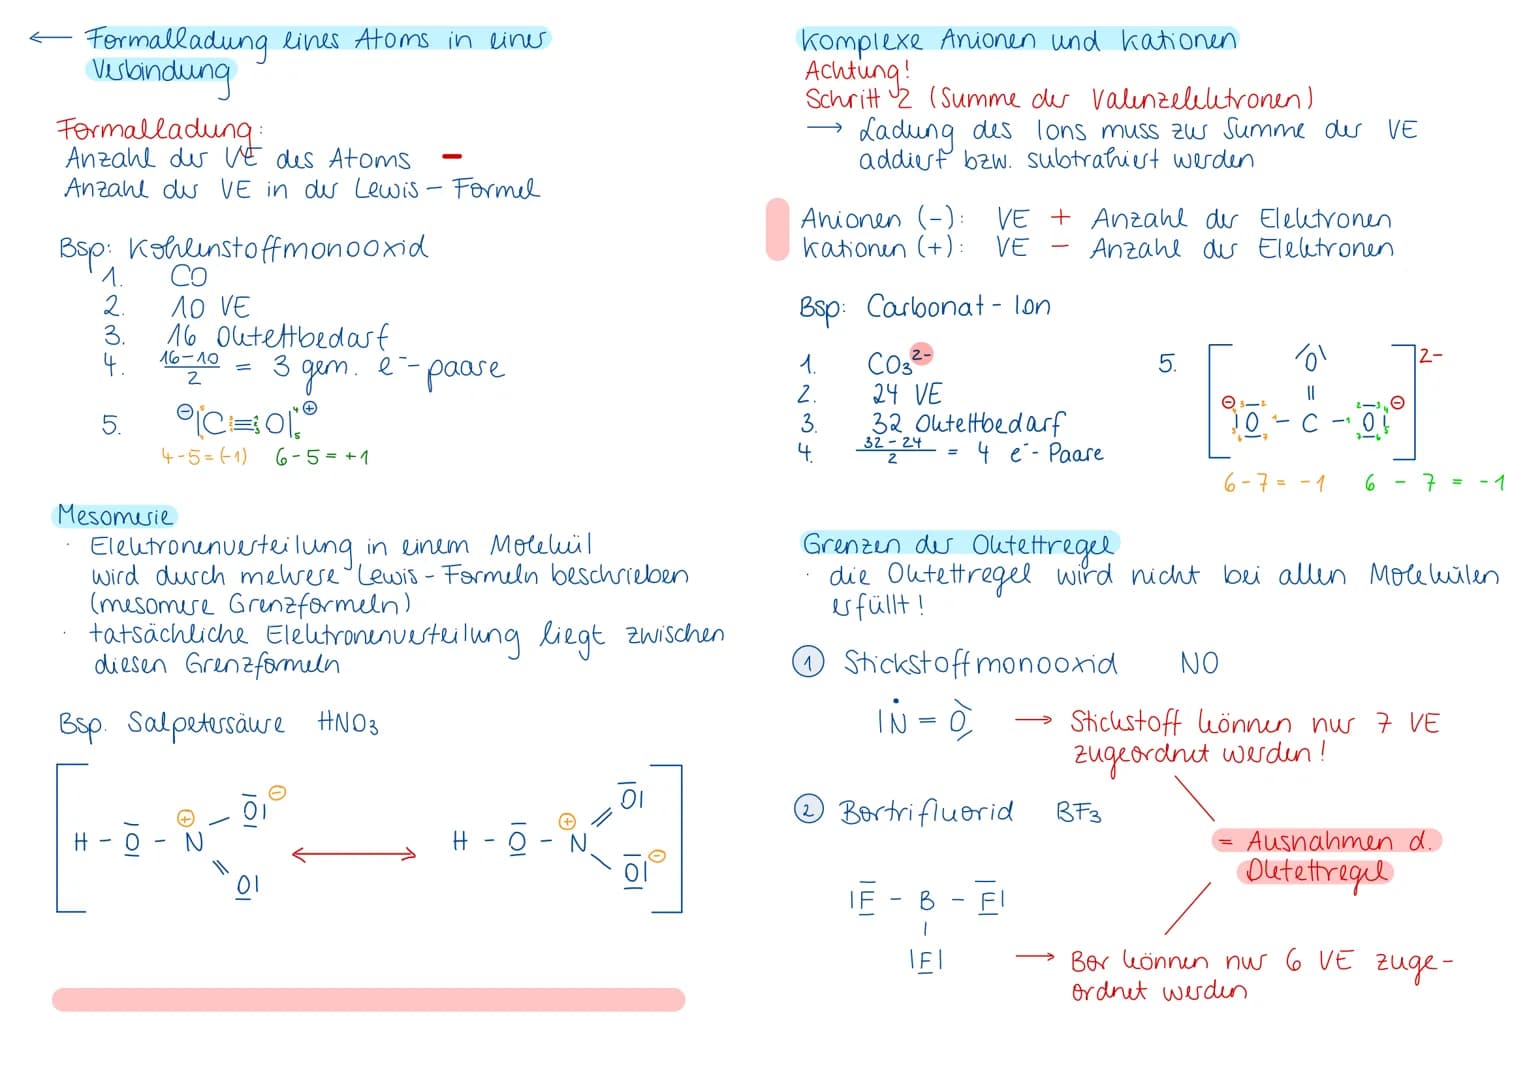 ← Formalladung eines Atoms in einer
Verbindung
Formalladung:
Anzahl der VE des Atoms −
Anzahl der VE in der Lewis-Formel
Bsp: Kohlenstoffmonooxid
1. CO
2. 10 VE
3. 16 Oktettbedarf
4. 16-10/2 = 3 gem. e⁻-paare
5. ⊖|C≡O|⊕
4-5=(-1) 6-5=+1
Mesomerie
· Elektronenverteilung in einem Molekül
wird durch mehrere Lewis-Formeln beschrieben
(mesomere Grenzformeln)
· tatsächliche Elektronenverteilung liegt zwischen
diesen Grenzformeln
Bsp. Salpetersäure HNO₃
O| ⊖ O|
H - O - N ⊕ ⟷ H - O - N ⊕
O| O| ⊖
Komplexe Anionen und Kationen
Achtung!
Schritt 2 (Summe der Valenzelektronen)
→ Ladung des Ions muss zur Summe der VE
addiert bzw. subtrahiert werden
Anionen (-): VE + Anzahl der Elektronen
Kationen (+): VE − Anzahl der Elektronen
Bsp: Carbonat-Ion
1. CO₃²⁻
2. 24 VE
3. 32 Oktettbedarf
4. 32-24/2 = 4 e⁻-Paare
5. [ O 2-
||
⊖ |O - C - O| ⊖ ]
6-7=-1 6-7=-1
Grenzen der Oktettregel
· die Oktettregel wird nicht bei allen Molekülen
erfüllt!
1 Stickstoffmonooxid NO
|N = O → Stickstoff können nur 7 VE
zugeordnet werden!
2 Bortrifluorid BF₃
= Ausnahmen d.
Oktettregel
|F - B - F|
|
|F| → Bor können nur 6 VE zuge-
ordnet werden